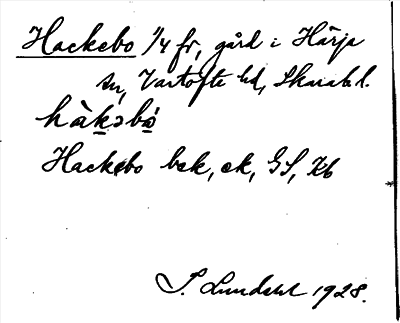 Hackebo 1/4 fr, gård i Härja
sn, Vartofte hd, Skarab. l.
hàkəbó
Hackebo bek, ek, GS, Kb
S. Lundahl 1928.